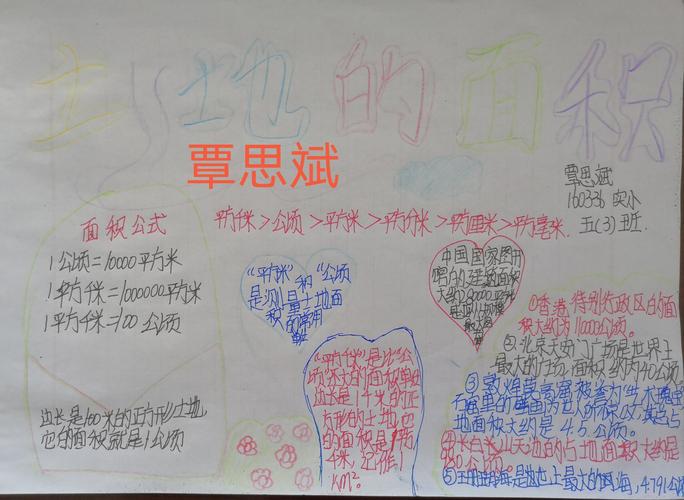 土地的面积
覃思斌
覃思斌
160336 实小
五(3)班
面积公式
1公顷=10000平方米
1平方千米=1000000平方米
1平方千米=100公顷
边长是100米的正方形土地
它的面积就是1公顷
平方千米>公顷>平方米>平方分米>平方厘米>平方毫米.
“平方米”和“公顷
是测量土地面
积的常用
单位
中国国家图
的建筑面积
“平方千米”是比“公
顷”还大的面积单位
边长是1千米的正
方形的土地,它
的面积是1平方
千米,记作1
km².
①香港特别行政区的面
积大约为110000公顷。
②北京天安门广场是世界上
最大的广场,面积约为40公顷
③敦煌莫高窟被誉为
地面积大约是4.5公顷.
④长白山天池的占地面积大约是
980公顷。
⑤珊瑚海是世界上最大的海,4791公